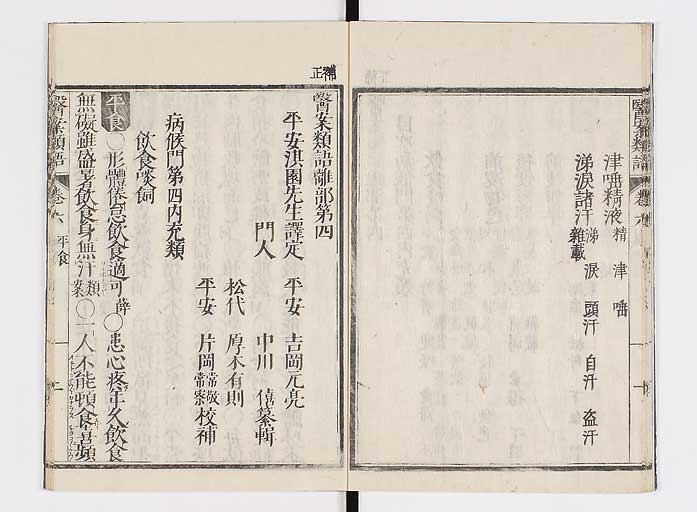 醫案類語 卷六
津唾精液 精 津 唾
涕淚諸汗 涕 淚 頭汗 自汗 盜汗
雜載
補正
醫案類語離部第四
平安淇園先生譯定
平安 吉岡元亮
門人 中川 僖纂輯
松代 厚木有則
平安 片岡常敬
常寮校補
病候門第四內充類
飲食啖飼
平食 ○形體倦怠飲食適可 薛 ○患心疼年久飲食
無礙雖盛暑飲食身無汗 類案 ○一人不能頓食喜頻
醫案類語 卷六 平食